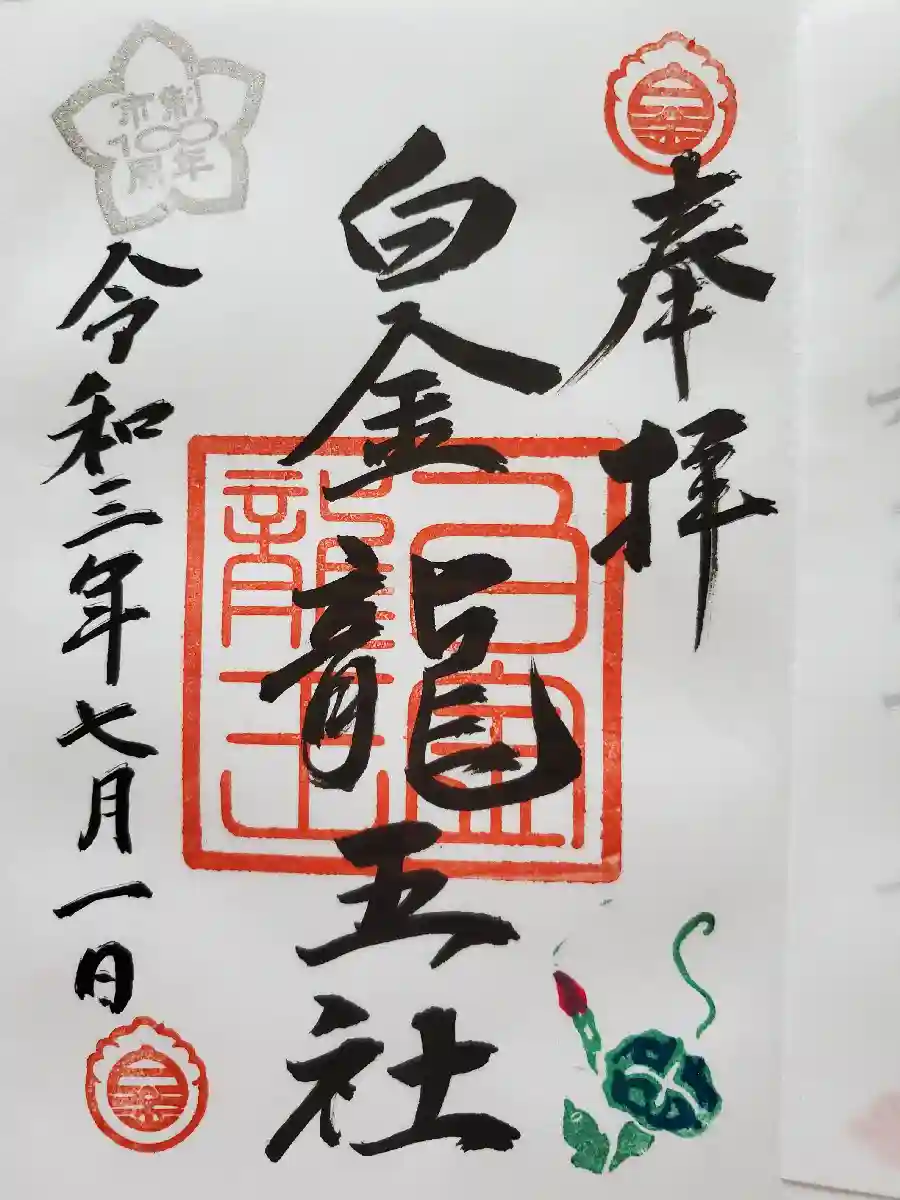 奉拝
白金龍王社
白金
龍王
市制
100
周年
令和三年七月一日